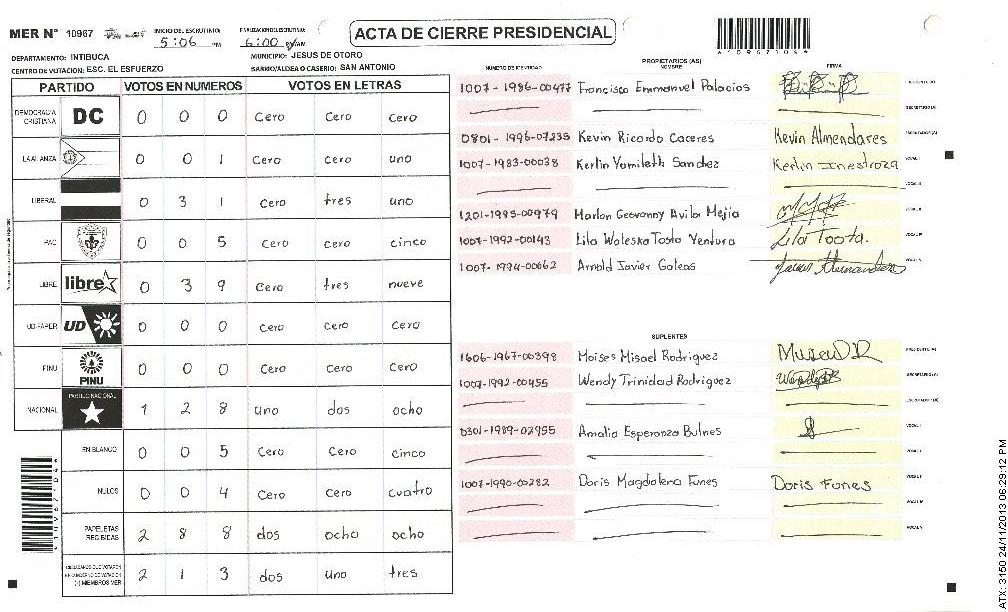 MER N° 10967
INICIO DEL ESCRUTINIO: 5:06 PM
FINALIZACION DEL ESCRUTINIO: 6:00 PM/AM
ACTA DE CIERRE PRESIDENCIAL
DEPARTAMENTO: INTIBUCA
MUNICIPIO: JESUS DE OTORO
CENTRO DE VOTACION: ESC. EL ESFUERZO
BARRIO/ALDEA O CASERIO: SAN ANTONIO
PARTIDO VOTOS EN NUMEROS VOTOS EN LETRAS
DEMOCRACIA CRISTIANA DC 0 0 0 Cero Cero Cero
LA ALIANZA 0 0 1 Cero Cero uno
LIBERAL 0 3 1 Cero tres uno
PAC 0 0 5 Cero cero cinco
LIBRE libre 0 3 9 Cero tres nueve
UD-FAPER UD 0 0 0 Cero Cero Cero
PINU PINU 0 0 0 Cero Cero Cero
NACIONAL PARTIDO NACIONAL 1 2 8 uno dos ocho
EN BLANCO 0 0 5 Cero Cero cinco
NULOS 0 0 4 Cero Cero cuatro
PAPELETAS RECIBIDAS 2 8 8 dos ocho ocho
2 1 3 dos uno tres
PROPIETARIOS (AS)
NUMERO DE IDENTIDAD NOMBRE FIRMA
1007-1986-00477 Francisco Emmanuel Palacios
SECRETARIO (A)
0801-1996-07235 Kevin Ricardo Caceres Kevin Almendares ESCRUTADOR (A)
1007-1983-00038 Kerlin Yamileth Sanchez Kerlin Inestroza VOCAL I
VOCAL II
1201-1985-00979 Marlon Geovanny Avila Mejia
1007-1992-00143 Lila Waleska Tosta Ventura Lila Toota.
1007-1994-00662 Arnold Javier Galeas VOCAL V
SUPLENTES
1606-1967-00398 Moises Misael Rodriguez PRESIDENTE (A)
1007-1992-00455 Wendy Trinidad Rodriguez SECRETARIO (A)
ESCRUTADOR (A)
0301-1989-02955 Amalia Esperanza Bulnes VOCAL I
1007-1990-00282 Doris Magdalena Funes Doris Funes
VOCAL V
ATX: 3150 24/11/2013 06:29:12 PM